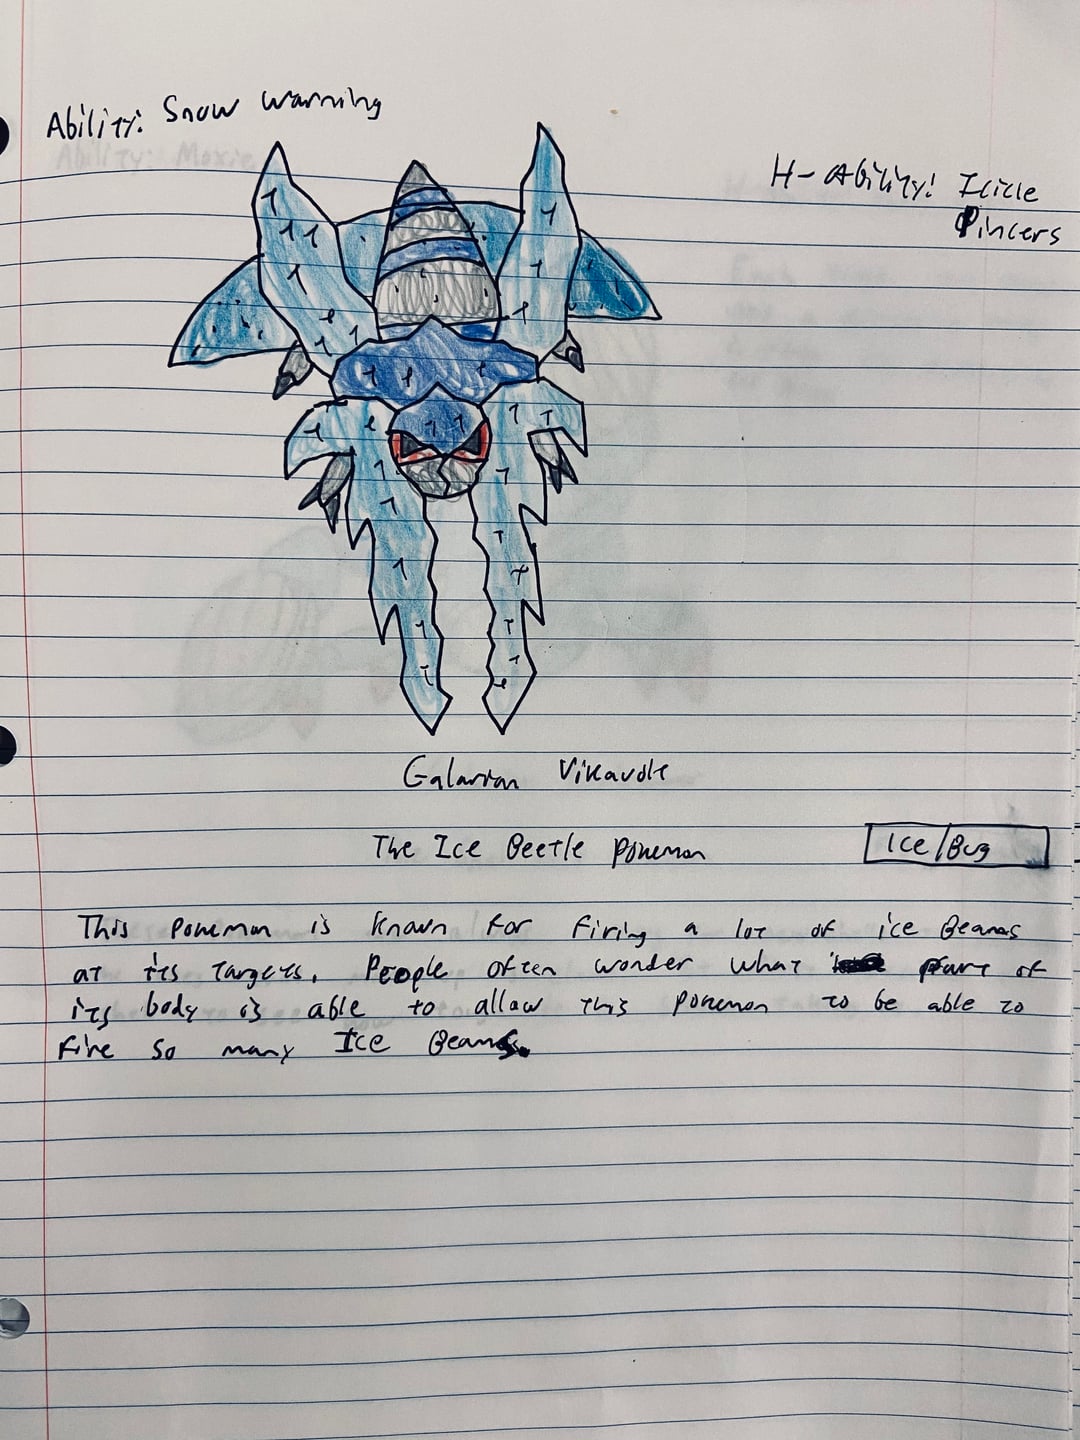 Ability: Snow Warning
H-Ability: Icicle
Pincers
Galarian Vikavolt
The Ice Beetle Pokemon
Ice/Bug
This Pokemon is known for firing a lot of ice Beams
at its targets. People often wonder what part of
its body is able to allow this pokemon to be able to
fire so many Ice Beams.
Ability: Moxie